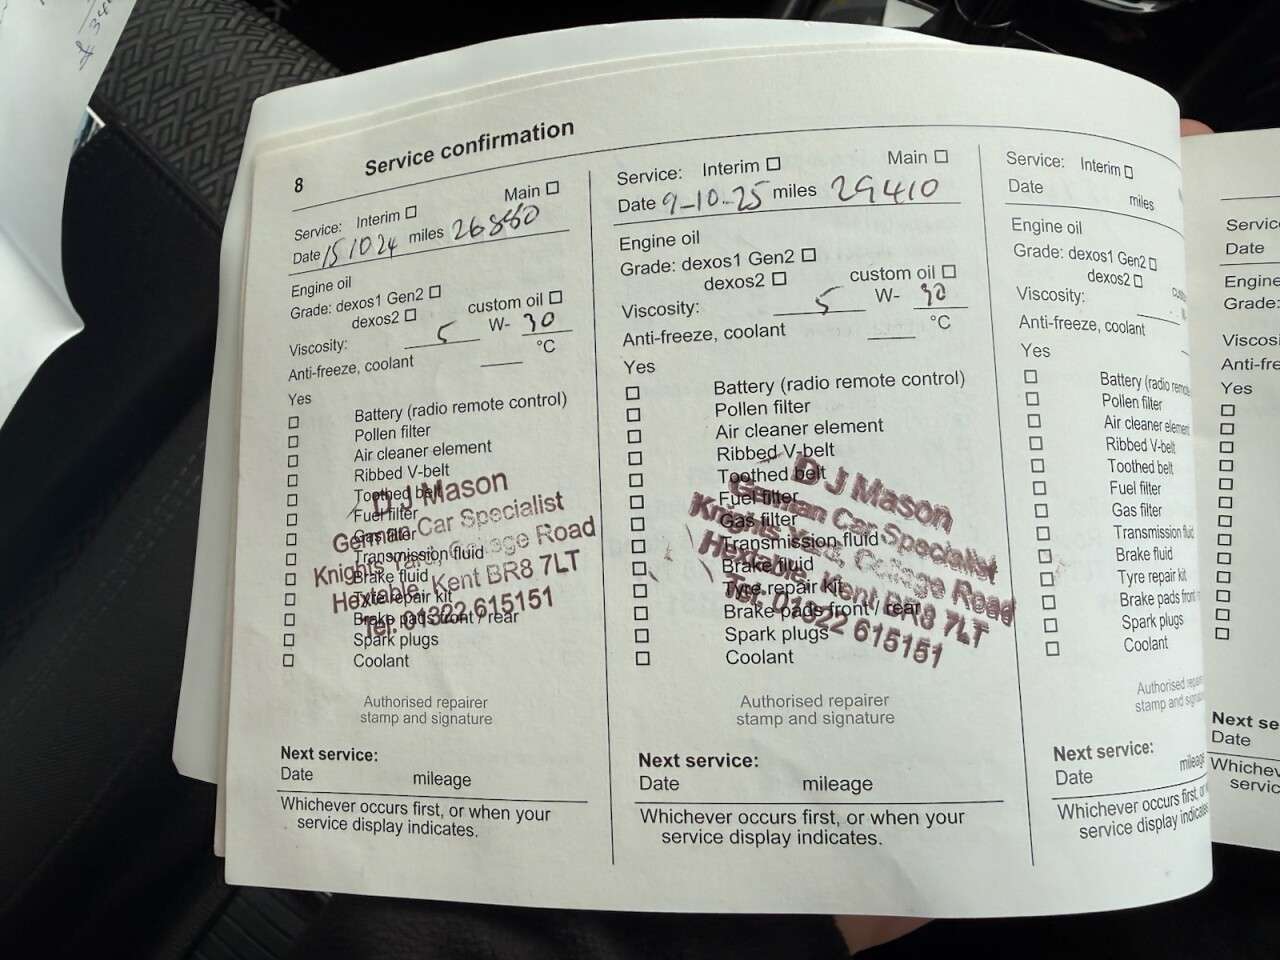 8 Service confirmation
Service: Interim ☐ Main ☐
Date 15 10 24 miles
Engine oil
Grade: dexos1 Gen2 ☐
dexos2 ☐ custom oil ☐
Viscosity: 5 W- 30
Anti-freeze, coolant ____ °C
Yes
☐ Battery (radio remote control)
☐ Pollen filter
☐ Air cleaner element
☐ Ribbed V-belt
☐ Toothed belt
☐ Fuel filter
☐ Gas filter
☐ Transmission fluid
☐ Brake fluid
☐ Tyre repair kit
☐ Brake pads front / rear
☐ Spark plugs
☐ Coolant
D J Mason
German Car Specialist
Knights Yard, College Road
Hextable, Kent BR8 7LT
Tel. 01322 615151
Authorised repairer
stamp and signature
Next service:
Date mileage
Whichever occurs first, or when your
service display indicates.
Service: Interim ☐ Main ☐
Date 9-10-25 miles 29410
Engine oil
Grade: dexos1 Gen2 ☐
dexos2 ☐ custom oil ☐
Viscosity: 5 W- 30
Anti-freeze, coolant ____ °C
Yes
☐ Battery (radio remote control)
☐ Pollen filter
☐ Air cleaner element
☐ Ribbed V-belt
☐ Toothed belt
☐ Fuel filter
☐ Gas filter
☐ Transmission fluid
☐ Brake fluid
☐ Tyre repair kit
☐ Brake pads front / rear
☐ Spark plugs
☐ Coolant
D J Mason
German Car Specialist
Knights Yard, College Road
Hextable, Kent BR8 7LT
Tel. 01322 615151
Authorised repairer
stamp and signature
Next service:
Date mileage
Whichever occurs first, or when your
service display indicates.
Service: Interim ☐
Date miles
Engine oil
Grade: dexos1 Gen2 ☐
dexos2 ☐
Viscosity:
Anti-freeze, coolant
Yes
☐ Battery (radio
☐ Pollen filter
☐ Air cleaner
☐ Ribbed V-belt
☐ Toothed belt
☐ Fuel filter
☐ Gas filter
☐ Transmission fluid
☐ Brake fluid
☐ Tyre repair kit
☐ Brake pads front
☐ Spark plugs
☐ Coolant
Authorised
stamp and
Next service:
Date
Whichever occurs first,
service display
Date
Engine
Grade:
Yes
Date